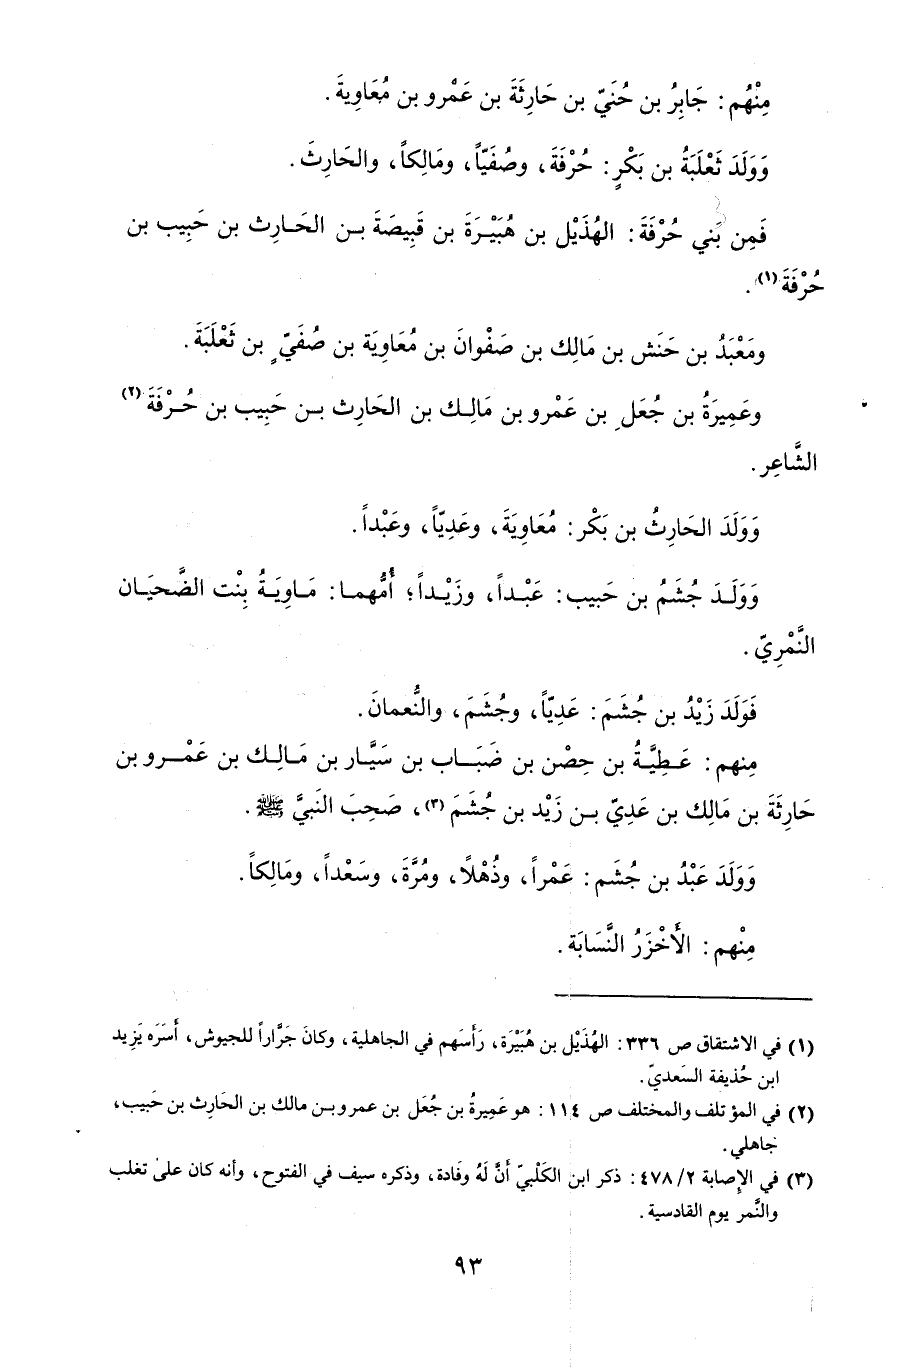 مِنْهُم : جَابِرُ بن حُنَيّ بن حَارِثَةَ بن عَمْرو بن مُعَاوِيةَ .
وَوَلَدَ ثَعْلَبَةُ بن بَكْرٍ : حُرْفَةَ ، وصُفَيّاً ، ومَالِكاً ، والحَارِثَ .
فَمِن بَني حُرْفَةَ : الهُذَيْل بن هُبَيْرَةَ بن قَبِيصَةَ بن الحَارِث بن حَبِيب بن
حُرْفَةَ (١) .
ومَعْبَدُ بن حَنَش بن مَالِك بن صَفْوانَ بن مُعَاوِيَة بن صُفَيّ بن ثَعْلَبَةَ .
وعَمِيرَةُ بن جُعَل بن عَمْرو بن مَالِك بن الحَارِث بن حَبِيب بن حُرْفَةَ (٢)
الشَّاعِر .
وَوَلَدَ الحَارِثُ بن بَكْر : مُعَاوِيَةَ ، وعَدِيّاً ، وعَبْداً .
وَوَلَدَ جُشَمُ بن حَبيب : عَبْداً ، وزَيْداً ؛ أُمُّهما : مَاوِيَةُ بِنْت الضَّحيَان
النَّمْرِيّ .
فَوَلَدَ زَيْدُ بن جُشَمَ : عَدِيّاً ، وجُشَمَ ، والنُّعمانَ .
مِنهم : عَطِيَّةُ بن حِصْن بن ضَبَاب بن سَيَّار بن مَالِك بن عَمْرو بن
حَارِثَةَ بن مَالك بن عَدِيّ بن زَيْد بن جُشَمَ (٣) ، صَحِبَ النَبيَّ ﷺ .
وَوَلَدَ عَبْدُ بن جُشَم : عَمْراً ، وذُهْلًا ، ومُرَّةَ ، وسَعْداً ، ومَالِكاً .
مِنْهم : الأَخْزَرُ النَّسَابَة .
(١) في الاشتقاق ص ٣٣٦ : الهُذَيْل بن هُبَيْرَة ، رَأَسَهم في الجاهلية ، وكانَ جَرَّاراً للجيوش ، أَسَرَه يَزِيد
ابن حُذيفة السَعديّ .
(٢) في المؤتلف والمختلف ص ١١٤ : هو عَمِيرةُ بن جُعَل بن عمرو بن مالك بن الحَارِث بن حَبيب ،
جَاهلي .
(٣) في الإِصابة ٤٧٨/٢ : ذكر ابن الكَلْبيّ أَنَّ لَهُ وفَادة ، وذكره سيف في الفتوح ، وأنه كان على تغلب
والنَّمر يوم القادسية .
٩٣